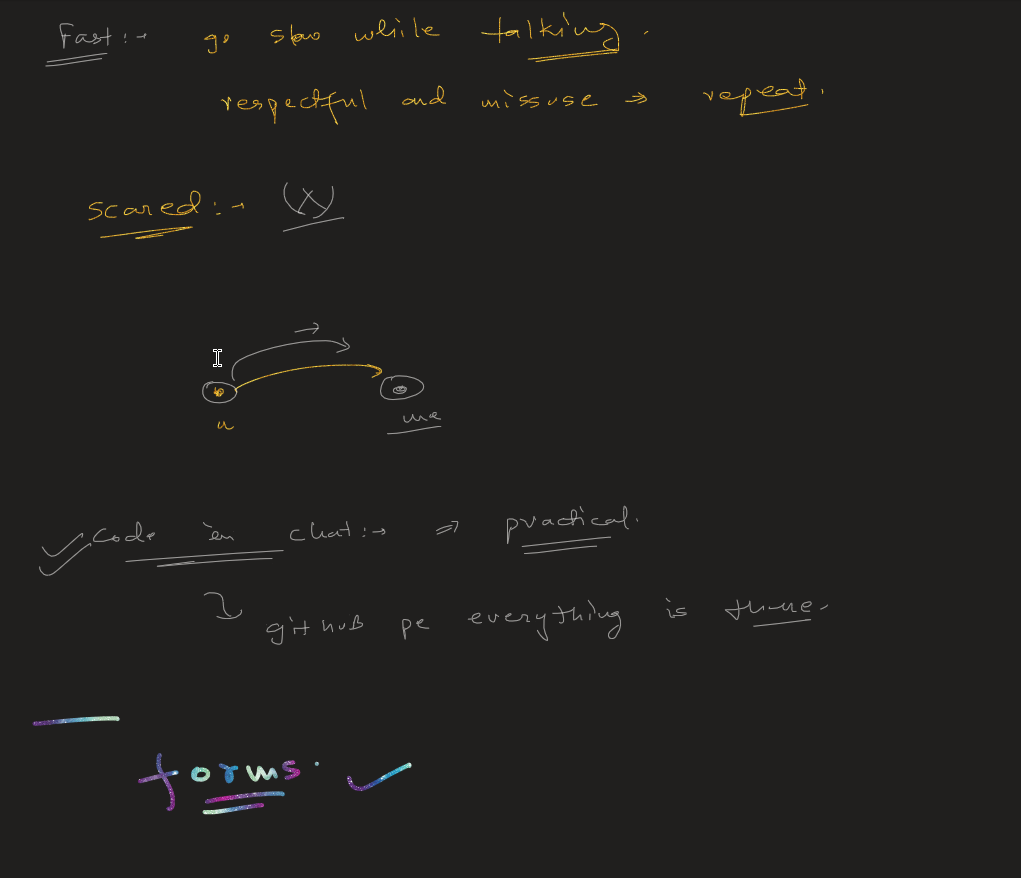 Fast :→ go slow while talking.
respectful and missuse → repeat.
scared :→ (X)
u
me
Code in chat :→ ⇒ practical.
gitHuB pe everything is there.
forms.